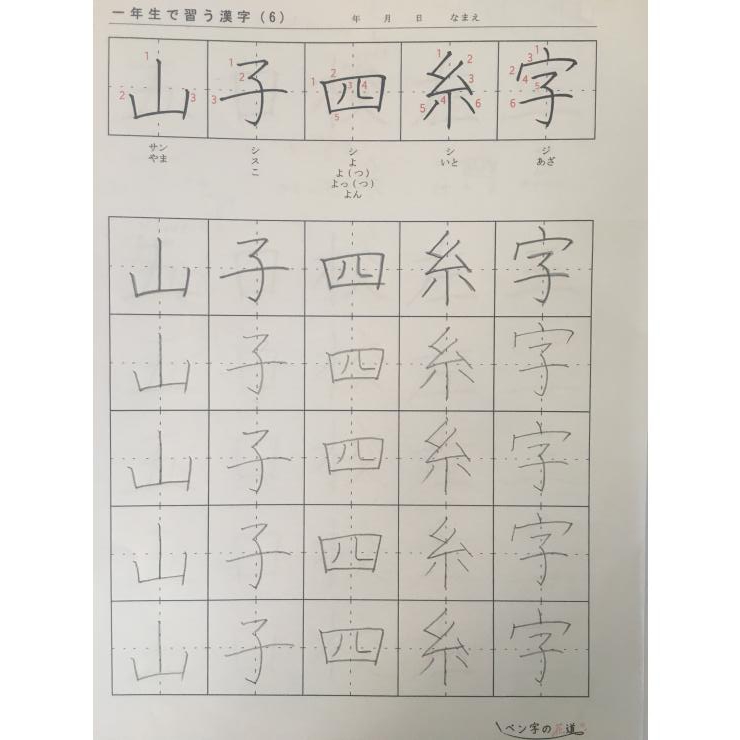 一年生で習う漢字(6) 年 月 日 なまえ
山 子 四 糸 字
1 2 3
1 2 3
1 2 3 4 5
1 2 3 4 5 6
1 2 3 4 5 6
サン シ シ シ ジ
やま ス よ いと あざ
こ よ(つ)
よっ(つ)
よん
山 子 四 糸 字
山 子 四 糸 字
山 子 四 糸 字
山 子 四 糸 字
山 子 四 糸 字
ペン字の花道